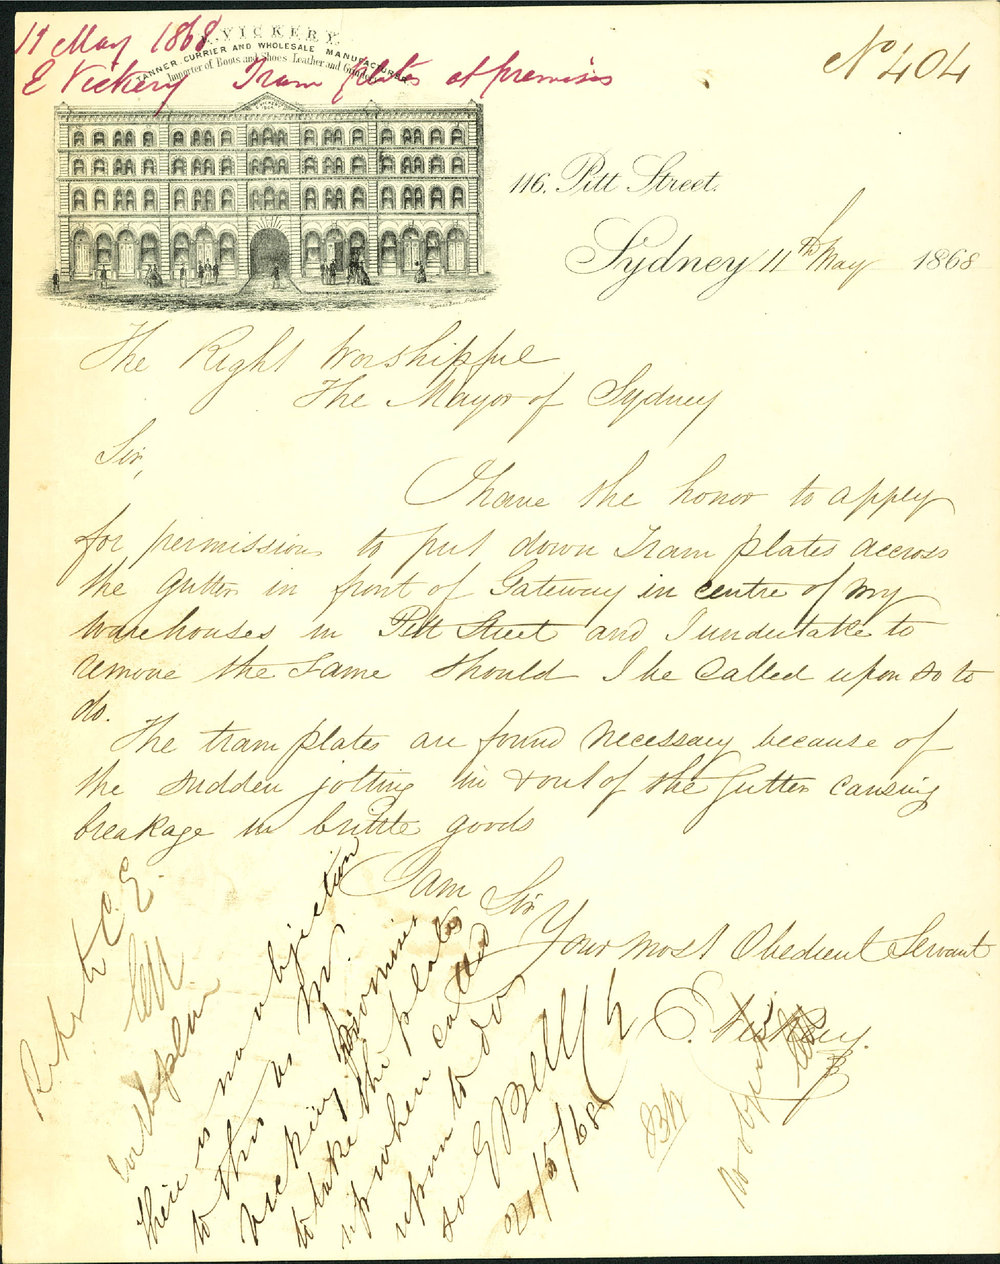 11 May 1868
E Vickery Tram plates at premises
E. VICKERY.
TANNER, CURRIER AND WHOLESALE MANUFACTURER
Importer of Boots and Shoes Leather and Grindery
No 404
116. Pitt Street.
Sydney 11th May 1868
The Right Worshipful
The Mayor of Sydney
Sir,
I have the honor to apply
for permission to put down Tram plates accross
the gutter in front of Gateway in centre of my
warehouses in Pitt Street and I undertake to
remove the same should I be called upon so to
do.
The tram plates are found necessary because of
the sudden jolting in & out of the Gutter causing
breakage in brittle goods
I am Sir
Your most Obedient Servant
E. Vickery.
Refer to C. E.
there is no objection
to this as Mr.
Vickery promises
to take the plates
up when called
upon to do
so E Bell C E
21/5/68
no objection